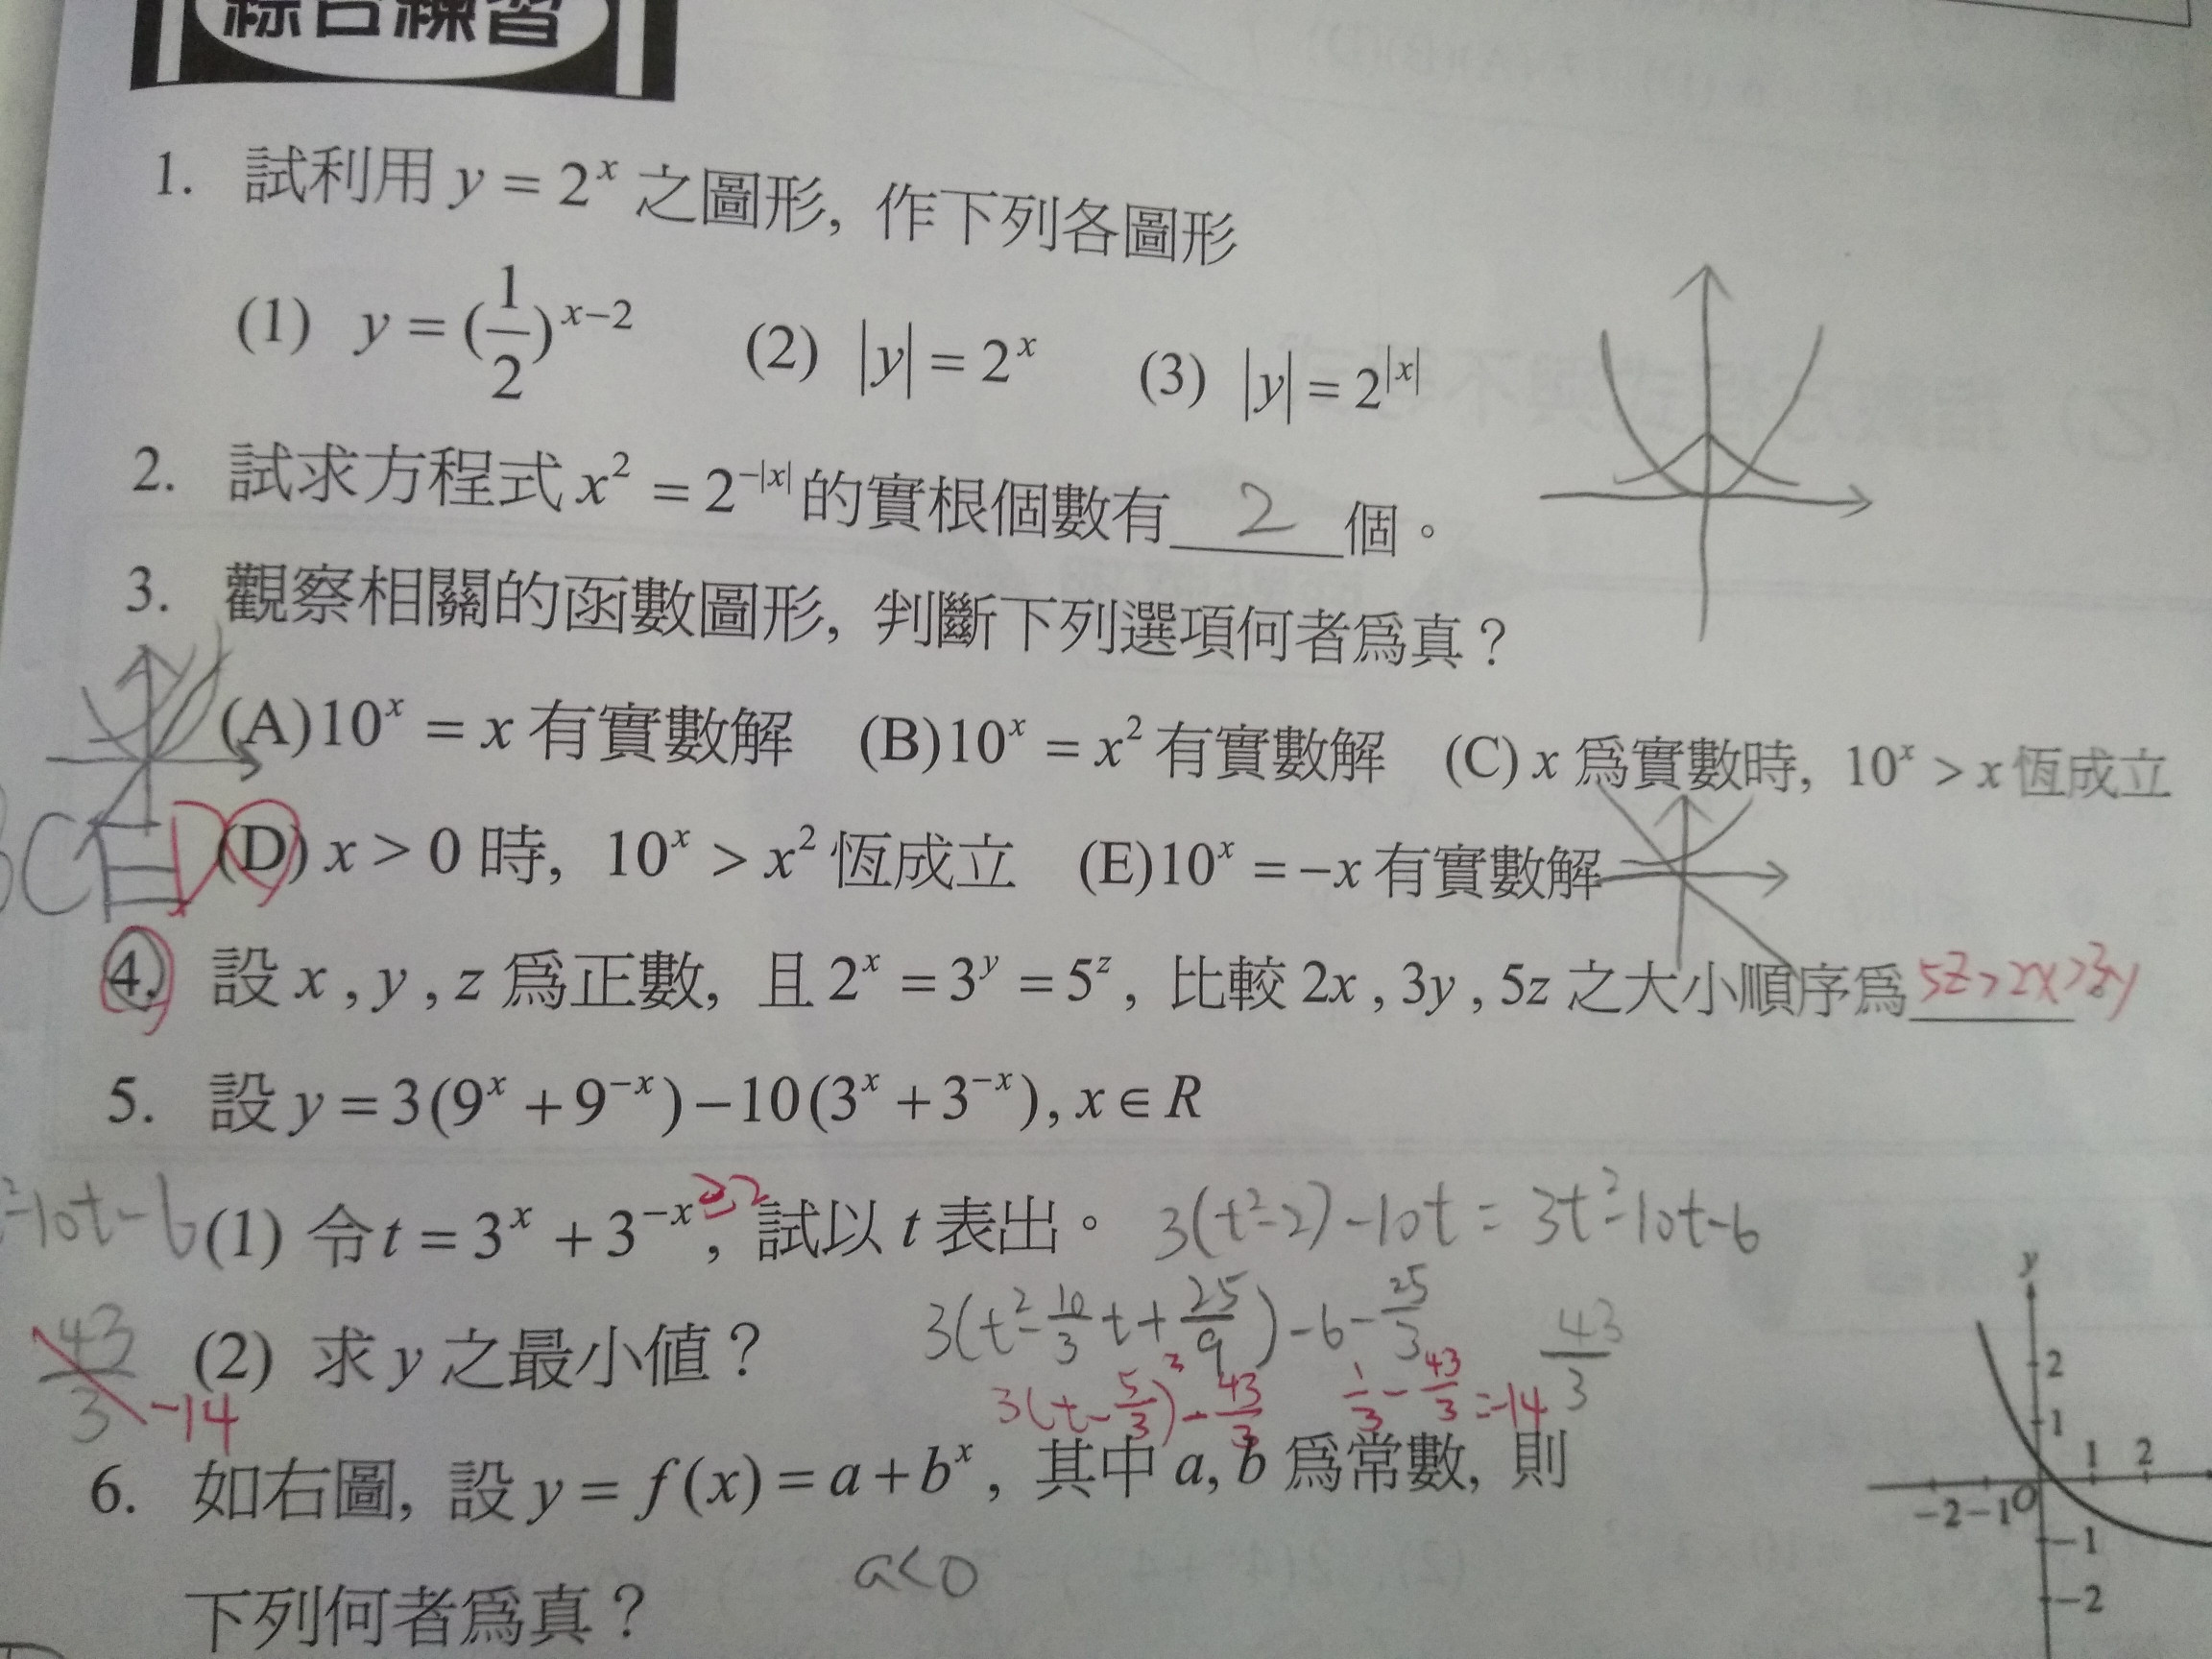 綜合練習
1. 試利用 y = 2^x 之圖形, 作下列各圖形
(1) y = (1/2)^{x-2} (2) |y| = 2^x (3) |y| = 2^{|x|}
2. 試求方程式 x^2 = 2^{-|x|} 的實根個數有 2 個。
3. 觀察相關的函數圖形, 判斷下列選項何者為真?
(A) 10^x = x 有實數解 (B) 10^x = x^2 有實數解 (C) x 為實數時, 10^x > x 恆成立
BCE D (D) x > 0 時, 10^x > x^2 恆成立 (E) 10^x = -x 有實數解
4. 設 x , y , z 為正數, 且 2^x = 3^y = 5^z , 比較 2x , 3y , 5z 之大小順序為 5z>2x>3y
5. 設 y = 3(9^x + 9^{-x}) - 10(3^x + 3^{-x}), x ∈ R
²-10t-6 (1) 令 t = 3^x + 3^{-x} ≥2, 試以 t 表出。 3(t²-2)-10t = 3t²-10t-6
43/3 -14 (2) 求 y 之最小值? 3(t²-10/3 t+25/9)-6-25/3 43/3
3(t-5/3)²-43/3 1/3-43/3=-14
6. 如右圖, 設 y = f(x) = a + b^x , 其中 a, b 為常數, 則
下列何者為真? a<0
y
2
1
1 2
-2 -1 O
-1
-2